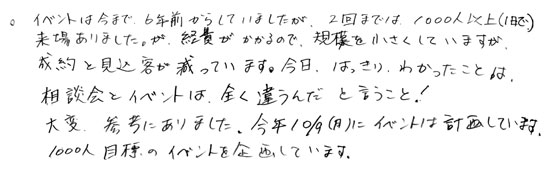 。イベントは今まで、6年前からしていましたが、2回までは、1000人以上(1日で)
来場ありました。が、経費がかかるので、規模を小さくしていますが、
成約と見込客が減っています。今日、はっきり、わかったことは、
相談会とイベントは、全く違うんだ と言うこと!
大変、参考にありました。今年10/9(月)にイベントは計画しています。
1000人目標のイベントを企画しています。